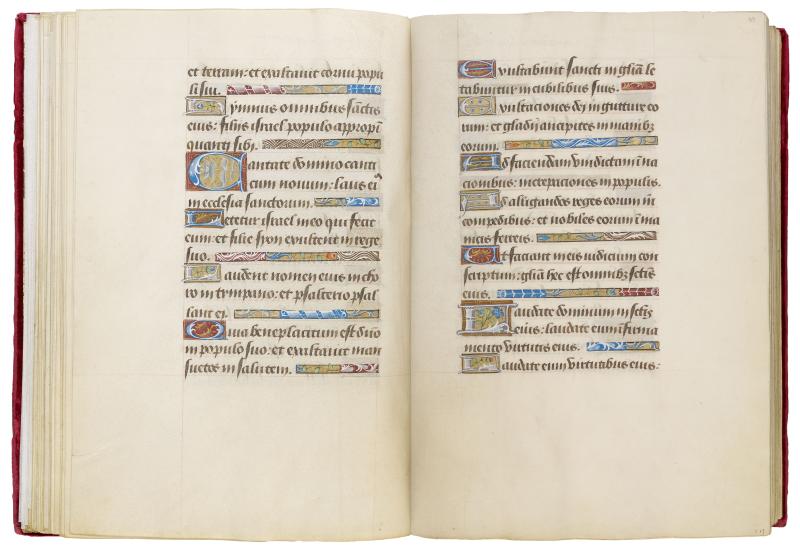 et terram: et exaltavit cornu popu
li sui.
Ymnus omnibus sanctis
eius: filiis israel populo appropi̅
quanti sibi.
Cantate domino canti
cum novum: laus ei̅
in ecclesia sanctorum.
Letetur israel in eo qui fecit
eum: et filie syon exultent in rege
suo.
Laudent nomen eius in cho
ro in timpano: et psalterio psal
lant ei.
Quia beneplacitum est d̅no
in populo suo: et exaltavit man
suetos in salutem.
Exultabunt sancti in gl̅ia le
tabuntur in cubilibus suis.
Exultaciones d̅i in gutture eo
rum: et gladii ancipites in manibꝫ
eorum.
Ad faciendam vindictam in na
cionibus: increpaciones in populis.
Ad alligandos reges eorum in̅
compedibus: et nobiles eorum in̅ ma
nicis ferreis.
Ut faciant in eis iudicium con
scriptum: gl̅ia hec est omnibꝫ sc̅tis
eius.
Laudate dominum in sc̅tis
eius: laudate eum in̅ firma
mento virtutis eius.
Laudate eum in virtutibus eius: